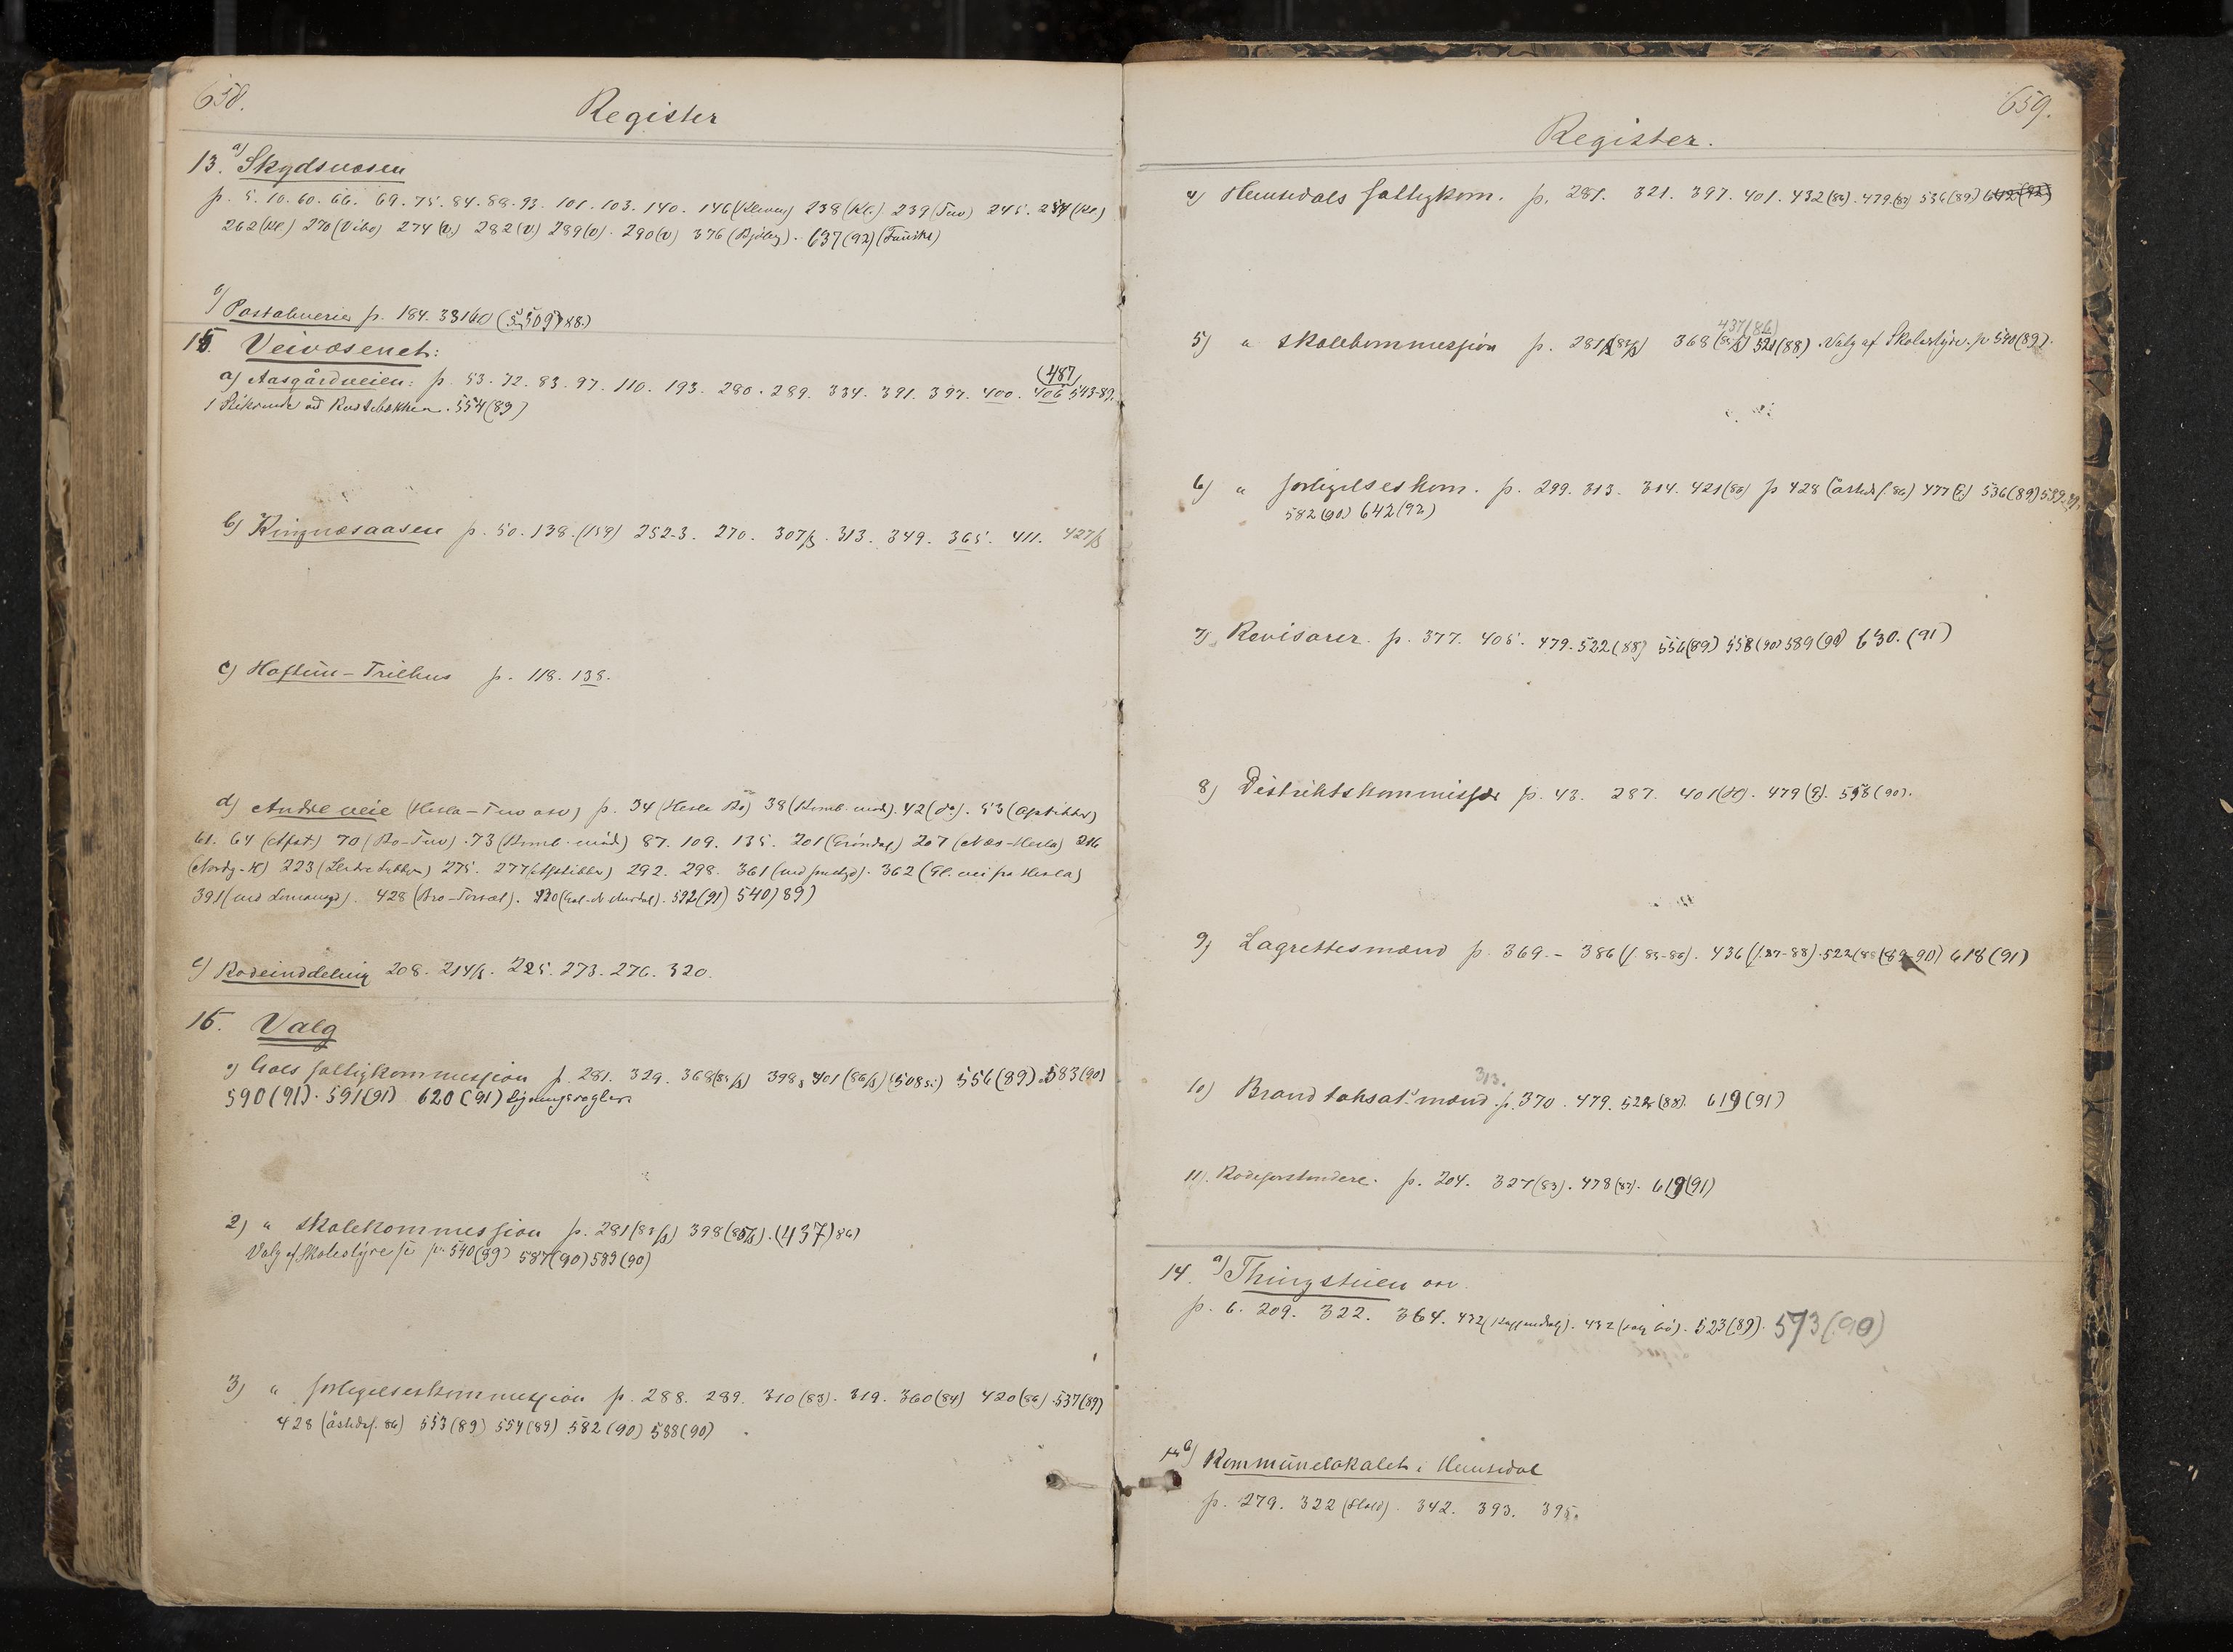 658.
Register
13. a) Skydsvæsen
p. 5. 10. 60. 66. 69. 75. 84. 88. 93. 101. 103. 140. 146 (Kleven) 238 (Kl.) 239 (Tuv) 245. 254 (Kl)
262 (Kl) 270 (Vibo) 274 (V.) 282 (V) 289 (V). 290 (V) 376 (Bjöberg). 637 (92)
b) Postaabnerier p. 184. (509) 88.)
15. Veivæsenet:
a) Aasgårdveien: p. 53. 72. 83. 97. 110. 193. 280. 289. 334. 391. 397. 400. 406 (487) 543-89.
554 (89)
b) Ringnesaasen p. 50. 138. (159) 252-3. 270. 307/8. 313. 349. 365. 411. 427/8
c) Haftun - Trillhus p. 118. 138.
d) Andre veie (Hesla - Tuv osv) p. 34 (Hesla Ro) 38 (Komb. ). 42 (do). 53 (opstikker)
61. 64 (Opst) 70 (Ro-Tuv). 73 (Komb. ) 87. 109. 135. 201 (Gröndal) 207 (Næs-Hesla) 216
(Nordg-H) 223 275. 277 (Opstikker) 292. 298. 361 362 (Gl. vei fra Hesla)
391 428 (Bro-Torset). 592 (91) 540) 89)
e) Rodeinddeling 208. 214/5. 225. 273. 276. 320.
16. Valg
1) Gols fattigkommission p. 281. 329. 368 398 401 (508 ) 556 (89). 583 (90)
590 (91). 591 (91) 620 (91) ligningsregler
2) " skolekommission p. 281 (83/4) 398 (85/6). (437) 86)
Valg af Skolestyre se p. 540 (89) 587 (90) 589 (90)
3) " forligelseskommission p. 288. 289. 310 (83). 319. 360 (84) 420 (86). 537 (89)
428 (åstedsf. 86) 553 (89) 554 (89) 582 (90) 588 (90)
659.
Register.
4) Hemsedals fattigkom. p. 281. 321. 397. 401. 432 (86). 479 (87) 536 (89) 642 (92)
437 (86)
5) " skolekommission p. 281 368 521 (88). Valg af Skolestyre. p 540 (89).
6) " forligelseskom. p. 299. 313. 314. 421 (86) p 428 (åstedsf. 86) 477 536 (89) 539.89.
582 (90) 642 (92)
7) Revisorer. p. 377. 405. 479. 522 (88) 556 (89) 558 (90) 589 (90) 630. (91)
8) Distriktskommissær p. 43. 287. 401 479 558 (90).
9) Lagrettesmænd p. 369. - 386 (f. 85-86). 436 (f. 87-88). 522 (88 (89-90) 618 (91)
313.
10) Brandtaksat. mænd. p. 370. 479. 522 (88). 619 (91)
11). Rodeforstandere. p. 204. 327 (83). 478 (87). 619 (91)
14. a) Thingstuen osv.
p. 6. 209. 322. 364. 432 432 523 (89). 573 (90)
14 b) Kommunelokalet i Hemsedal
p. 279. 322 (Stald). 342. 393. 395.